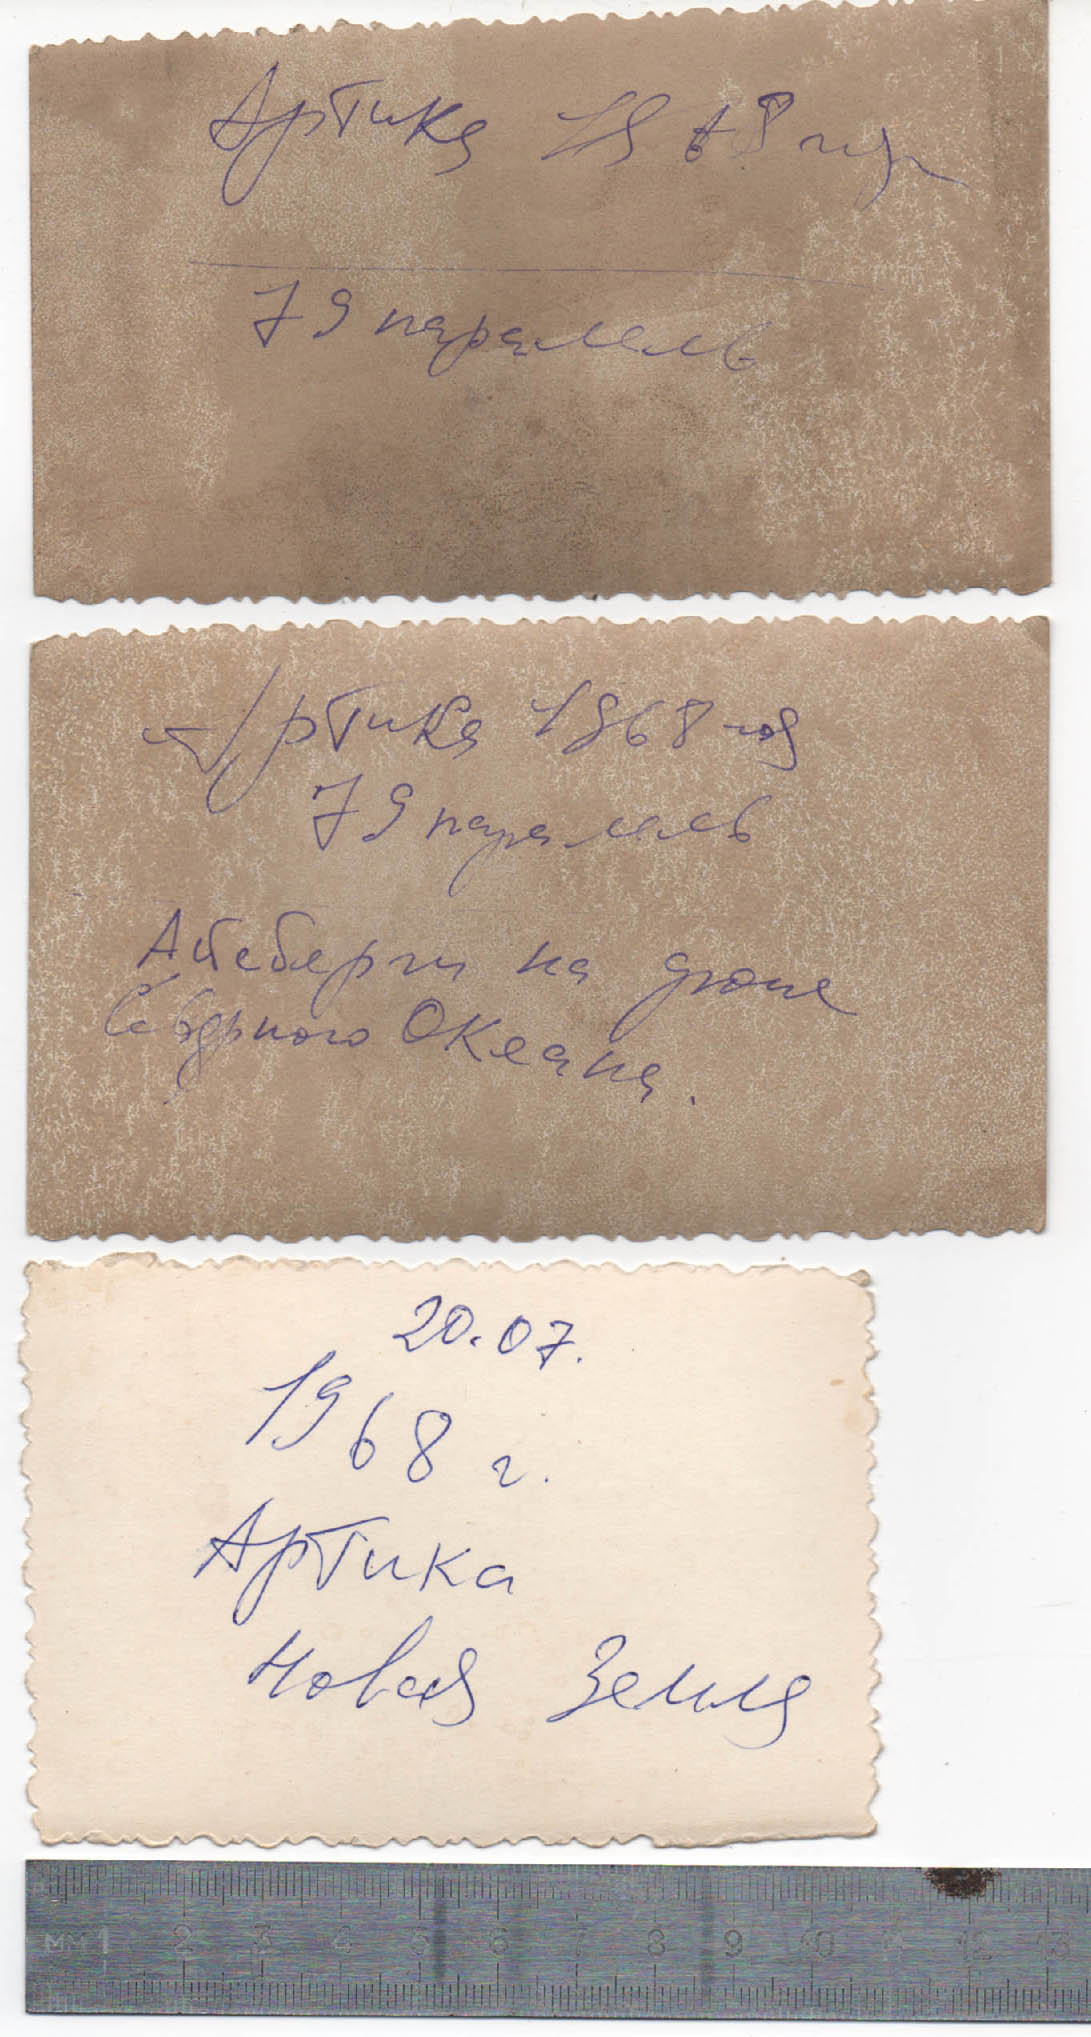 Артика 1968 год
79 паралель
Артика 1968 год
79 паралель
Айсберги на фоне
Северного Океана.
20.07.
1968 г.
Артика
Новая Земля
ММ 1 2 3 4 5 6 7 8 9 10 11 12 13